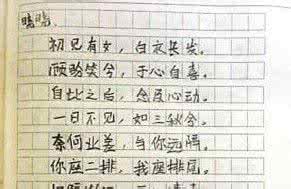 晓晓:
初见有女，白衣长发。
顾盼笑兮，于心自喜。
自此之后，念及心动。
一日不见，如三秋兮。
奈何业差，与你远隔。
你座二排，我座排尾。